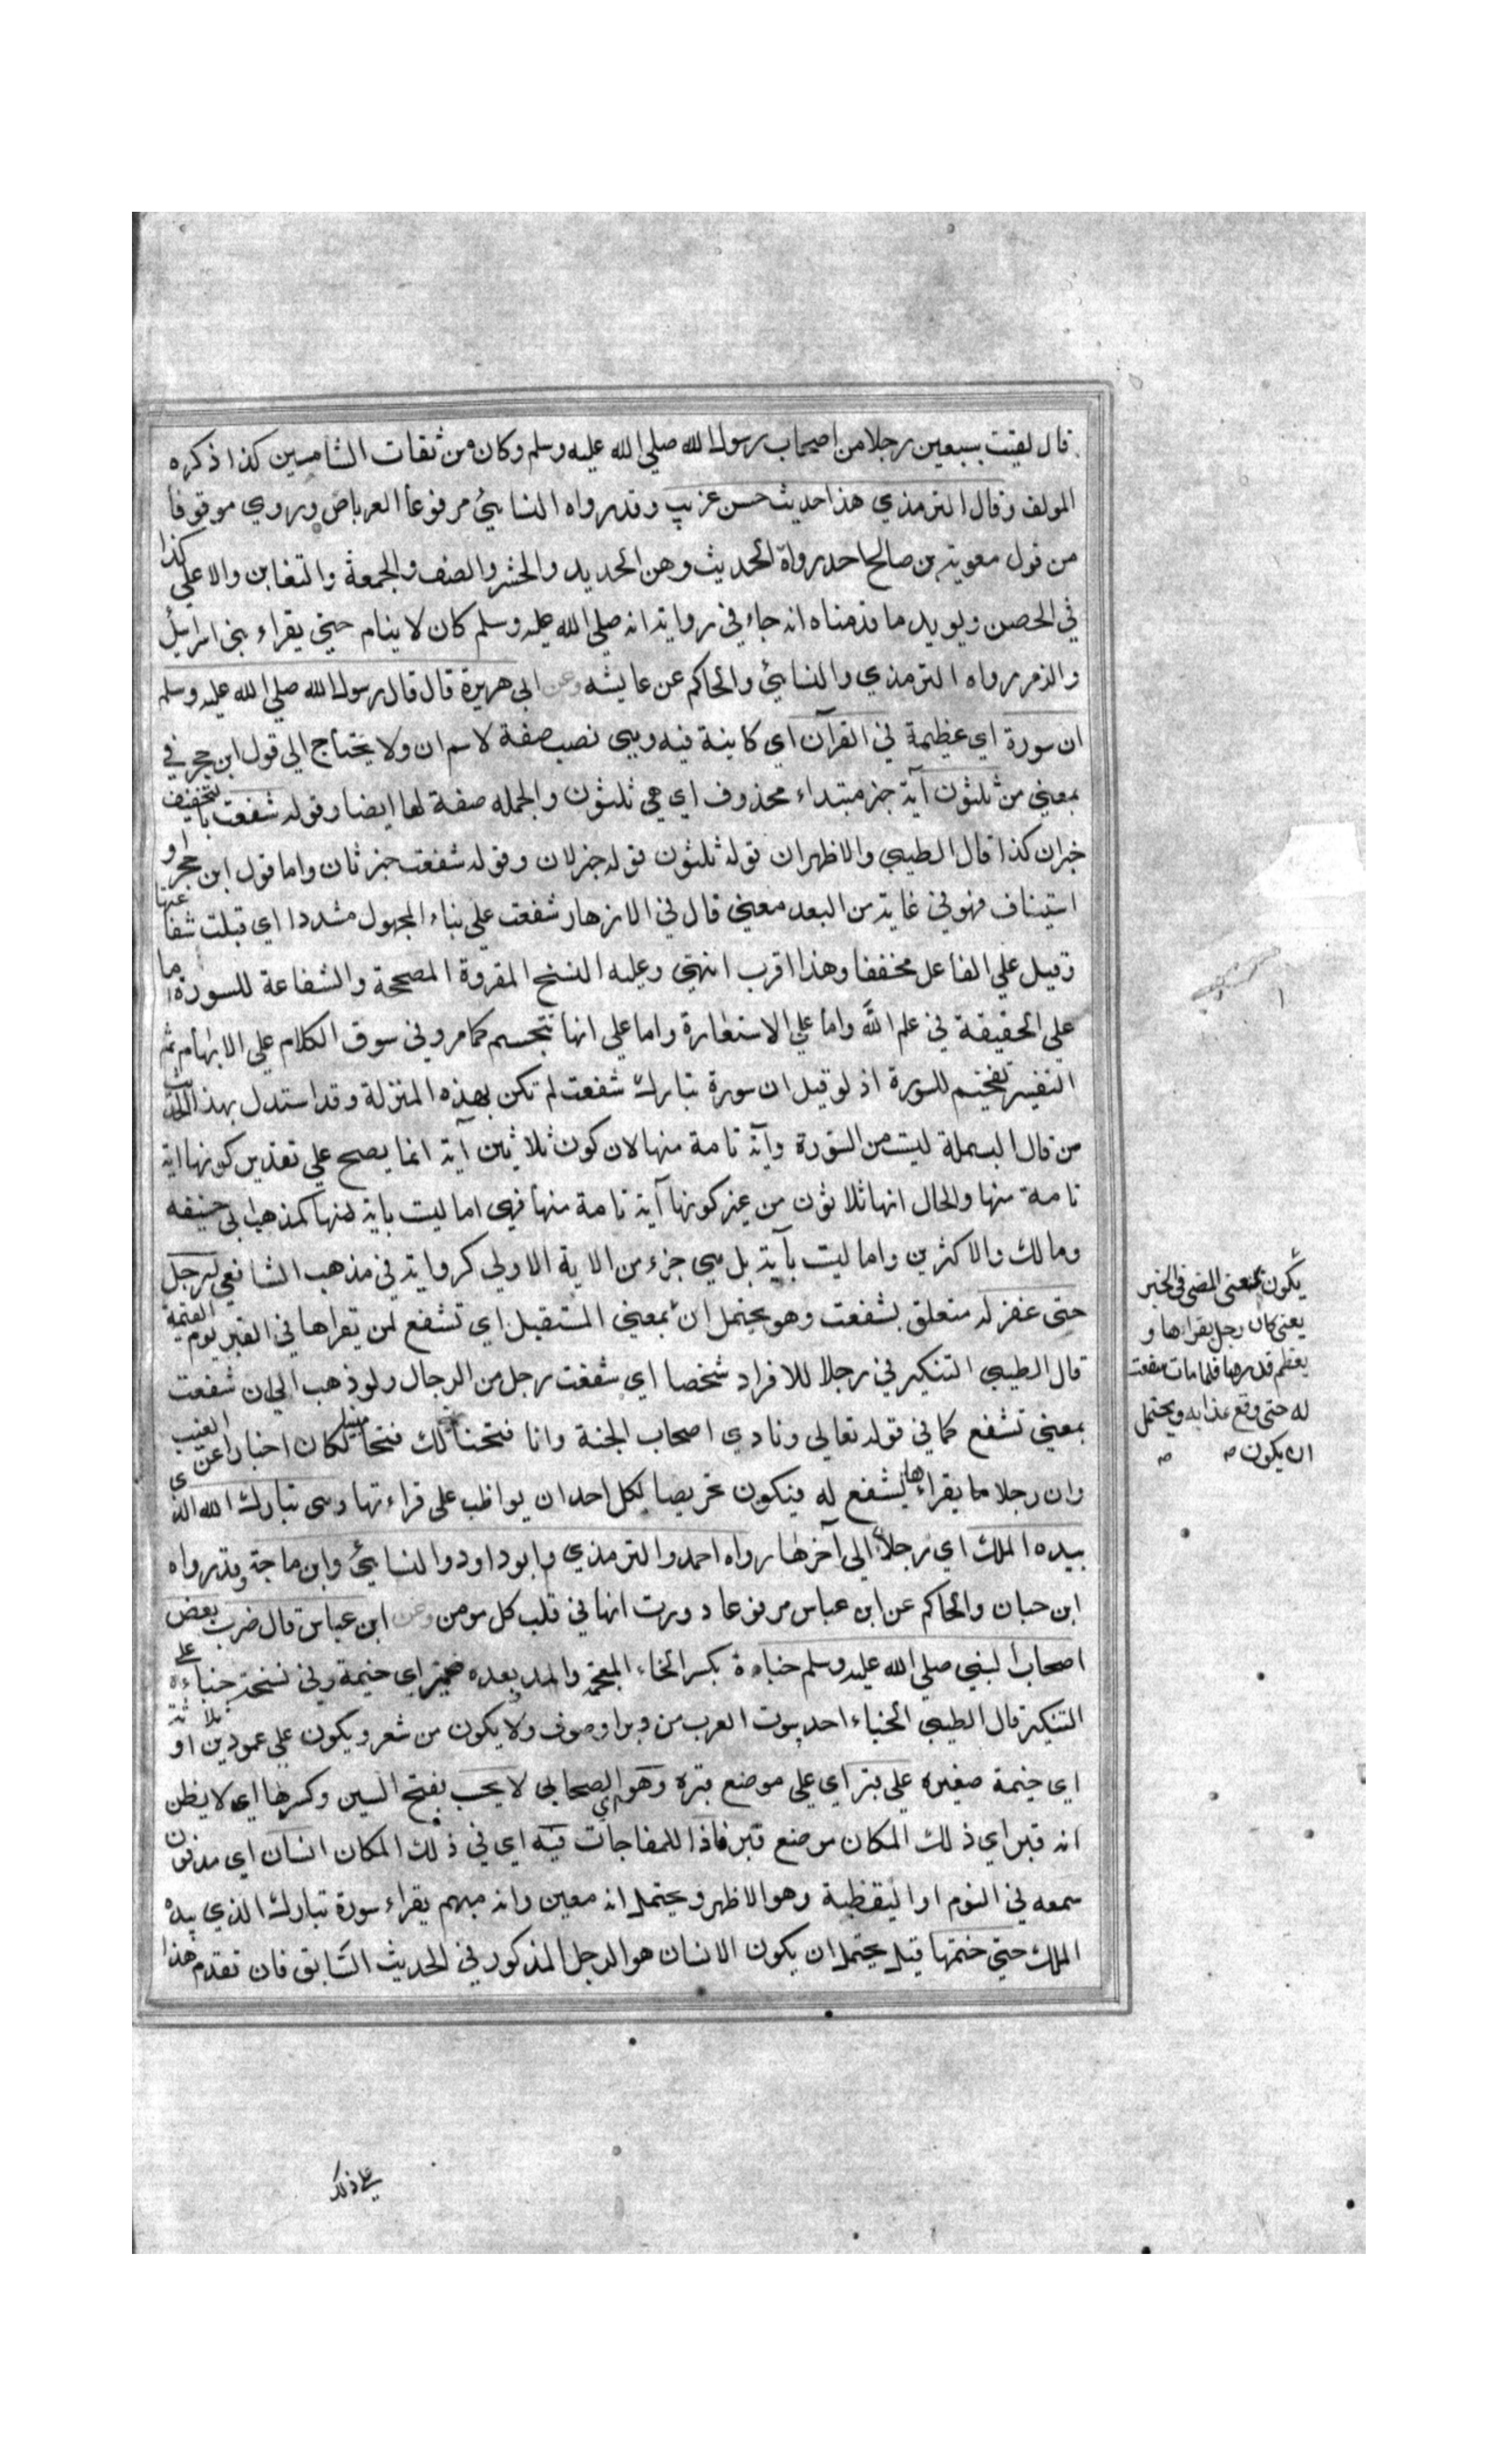 قال لقيت سبعين رجلا من اصحاب رسول الله صلي الله عليه وسلم وكان من ثقات الشاميين كذا ذكره
المولف وقال الترمذي هذا حديث حسن غريب وقد رواه النسايئ مرفوعا العرباض وروي موقوفا
من قول معوية بن صالح احد رواة الحديث وهن الحديد والحشر والصف والجمعة والتغابن والاعلي كذا
في الحصن ويويد ما قدمناه انه جاء في رواية انه صلي الله عليه وسلم كان لا ينام حتي يقراء بني اسرايل
والزمر رواه الترمذي والنسايئ والحاكم عن عايشه وعن ابي هريرة قال قال رسول الله صلي الله عليه وسلم
ان سورة اي عظيمة في القرآن اي كاينة فيه وهي نصب صفة لاسم ان ولا يحتاج الي قول ابن حجر في
بمعني من ثلثون آية خبر مبتداء محذوف اي هي ثلثون والجمله صفة لها ايضا وقوله شفعت بالتخفيف
خبر ان كذا قال الطيبي والاظهر ان قوله ثلثون قوله خبر لان وقوله شفعت خبر ثان واما قول ابن حجر او
استيناف فهو في غاية من البعد معني قال في الازهار شفعت علي بناء المجهول مشددا اي قبلت شفاعتها
وقيل علي الفاعل مخففا وهذا اقرب انتهي وعليه النسخ المقروة المصححة والشفاعة للسورة اما
علي الحقيقة في علم الله واما علي الاستعارة واما علي انها تتجسم كما مر وفي سوق الكلام علي الابهام ثم
التفسير تفخيم للسورة اذ لو قيل ان سورة تبارك شفعت لم تكن بهذه المنزلة وقد استدل بهذا الحديث
من قال البسملة ليست من السورة وآية تامة منها لان كون ثلاثين آية انما يصح علي تقدير كونها اية
تامة منها والحال انها ثلاثون من غير كونها آية تامة منها فهي اما ليست باية منها كمذهب ابي حنيفه
ومالك والاكثرين واما ليست بآية بل هي جزء من الاية الاولي كرواية في مذهب الشافعي لرجل
حتي غفر له متعلق بشفعت وهو يحتمل ان بمعني المستقبل اي تشفع لمن يقراها في القبر يوم القيمة
قال الطيبي التنكير في رجلا للافراد شخصا اي شفعت رجل من الرجال ولو ذهب الي ان شفعت
بمعني تشفع كما في قوله تعالي ونادي اصحاب الجنة وانا فتحنا لك فتحا مبينا لكان اخبارا عن الغيب
وان رجلا ما يقراءها يشفع له فيكون تحريصا لكل احد ان يواظب علي قراءتها وهي تبارك الله الذي
بيده الملك اي رجلا الي آخرها رواه احمد والترمذي وابو داود والنسايئ وابن ماجة وقد رواه
ابن حبان والحاكم عن ابن عباس مرفوعا وددت انها في قلب كل مومن وعن ابن عباس قال ضرب بعض
اصحاب النبي صلي الله عليه وسلم خباءة بكسر الخاء المعجمة والمد بعده ضمير اي خيمة وفي نسخة خباءة علي
التنكير قال الطيبي الخباء احد بيوت العرب من وبر او صوف ولا يكون من شعر ويكون علي عمودين او ثلاثة
اي خيمة صغيره علي قبر اي علي موضع قبره وهو اي الصحابي لا يحسب بفتح السين وكسرها اي لا يظن
انه قبر اي ذلك المكان موضع قبر فاذا للمفاجات فيه اي في ذلك المكان انسان اي مدفون
سمعه في النوم او اليقظية وهو الاظهر ويحتمل انه معين وانه مبهم يقراء سورة تبارك الذي بيده
الملك حتي ختمها قيل يحتمل ان يكون الانسان هو الرجل المذكور في الحديث السابق فان تقدم هذا
يكون بمعني المضي في الخبر
يعني كان رجل يقراءها و
يعظم قدرها فلما مات شفعت
له حتي دفع عذابه ويحتمل
ان يكون
علي ذلك